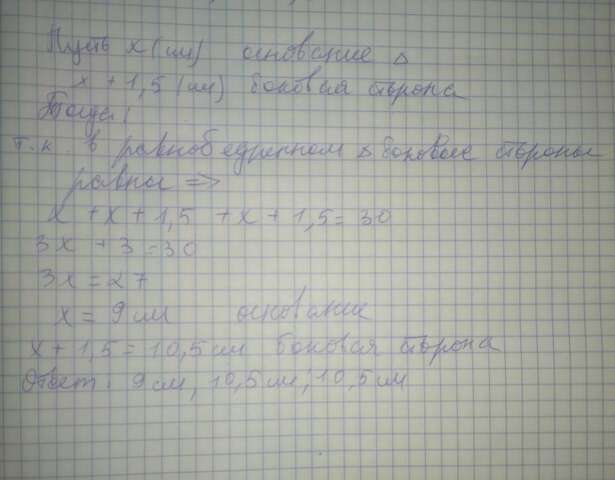 Пусть x (см) основание △
x + 1,5 (см) боковая сторона
Тогда:
т.к. в равнобедренном △ боковые стороны
равны =>
x + x + 1,5 + x + 1,5 = 30
3x + 3 = 30
3x = 27
x = 9 см основание
x + 1,5 = 10,5 см боковая сторона
Ответ: 9 см, 10,5 см, 10,5 см